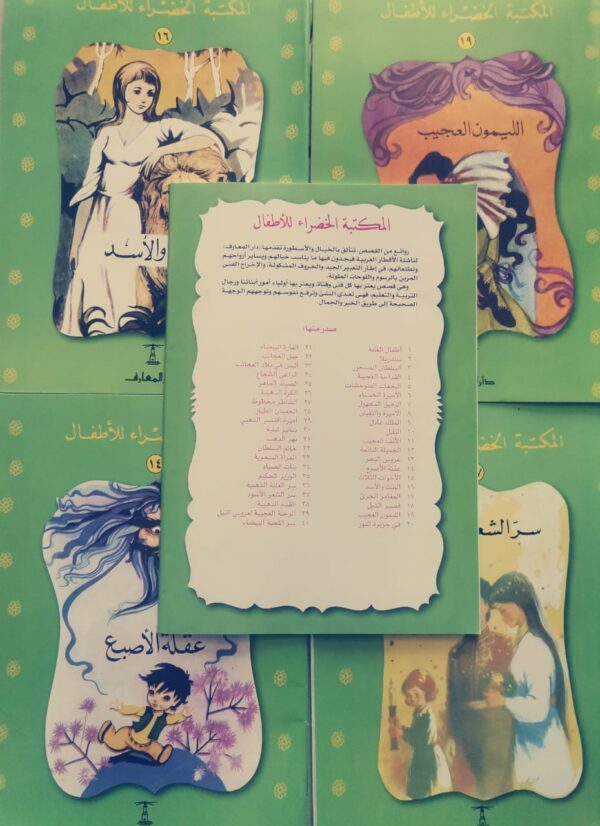 المكتبة الخضراء للأطفال
١٦
والأسد
المعارف
المكتبة الخضراء للأطفال
١٩
الليمون العجيب
دار
المكتبة الخضراء للأطفال
روائع من القصص، تتألق بالخيال والأسطورة تقدمها: دار المعارف:
لناشئة الأقطار العربية فيجدون فيها ما يناسب خيالهم ويساير أرواحهم
وتطلعاتهم، في إطار التعبير الجيد والحروف المشكولة، والإخراج الفنى
المزين بالرسوم واللوحات الملونة
وهى قصص يعتز بها كل فتى وفتاة، ويعتز بها أولياء أمور أبنائنا ورجال
التربية والتعليم، فهى تغذى النشئ وترفع نفوسهم وتوجههم الوجهة
الصحيحة إلى طريق الخير والجمال.
صدر منها:
١ أطفال الغابة
٢ سندريلا
٣ السلطان المسحور
٤ القداحة العجيبة
٥ البجعات المتوحشات
٦ الأميرة الحسناء
٧ الرفيق المجهول
٨ الأميرة والثعبان
٩ الملك عادل
١٠ البلبل
١١ الأنف العجيب
١٢ الجميلة النائمة
١٣ عروس البحر
١٤ عقلة الأصبع
١٥ الأخوات الثلاث
١٦ البنت والأسد
١٧ المغامر الجرئ
١٨ قصير الذيل
١٩ الليمون العجيب
٢٠ في جزيرة النور
٢١ الفارة البيضاء
٢٢ جبل العجائب
٢٣ أليس في بلاد العجائب
٢٤ الراعى الشجاع
٢٥ الصياد الماهر
٢٦ الكرة الذهبية
٢٧ الشاطر محظوظ
٢٨ الحصان الطيار
٢٩ أميرة القصر الذهبى
٣٠ دنانير لبلبة
٣١ نهر الذهب
٣٢ خاتم السلطان
٣٣ المرآة السحرية
٣٤ بنات الصياد
٣٥ الوزير الحكيم
٣٦ سر العلبة الذهبية
٣٧ سر الشعر الأسود
٣٨ القدم الذهبية
٣٩ الرحلة العجيبة لعروس النيل
٤٠ سر اللحية البيضاء
المكتبة الخضراء للأطفال
١٤
عقلة الأصبع
المكتبة الخضراء للأطفال
٧
سر الشع